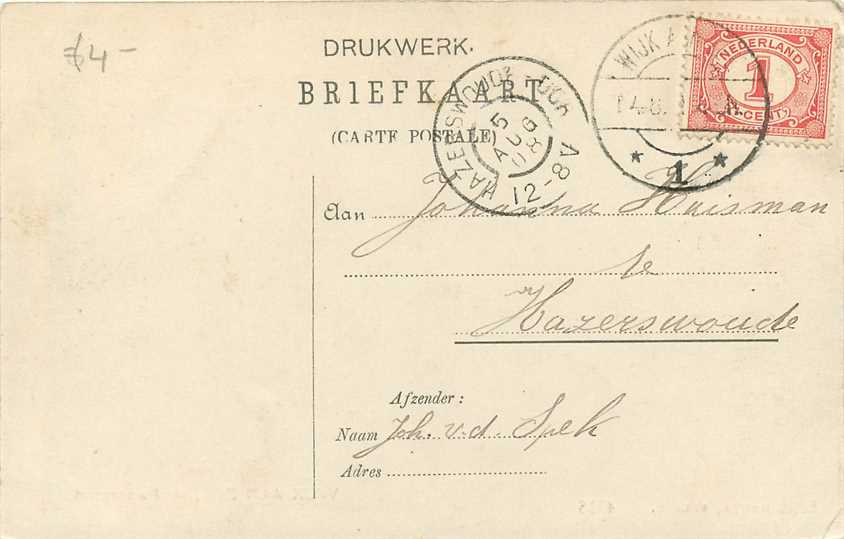 64-
DRUKWERK.
BRIEFKAART
(CARTE POSTALE)
HAZERSWOUDE-DOR
5
AUG
08
12-8V
WIJK A
1
NEDERLAND
1
CENT
Aan Johanna Huisman
te
Hazerswoude
Afzender:
Naam Joh. v.d. Spek
Adres